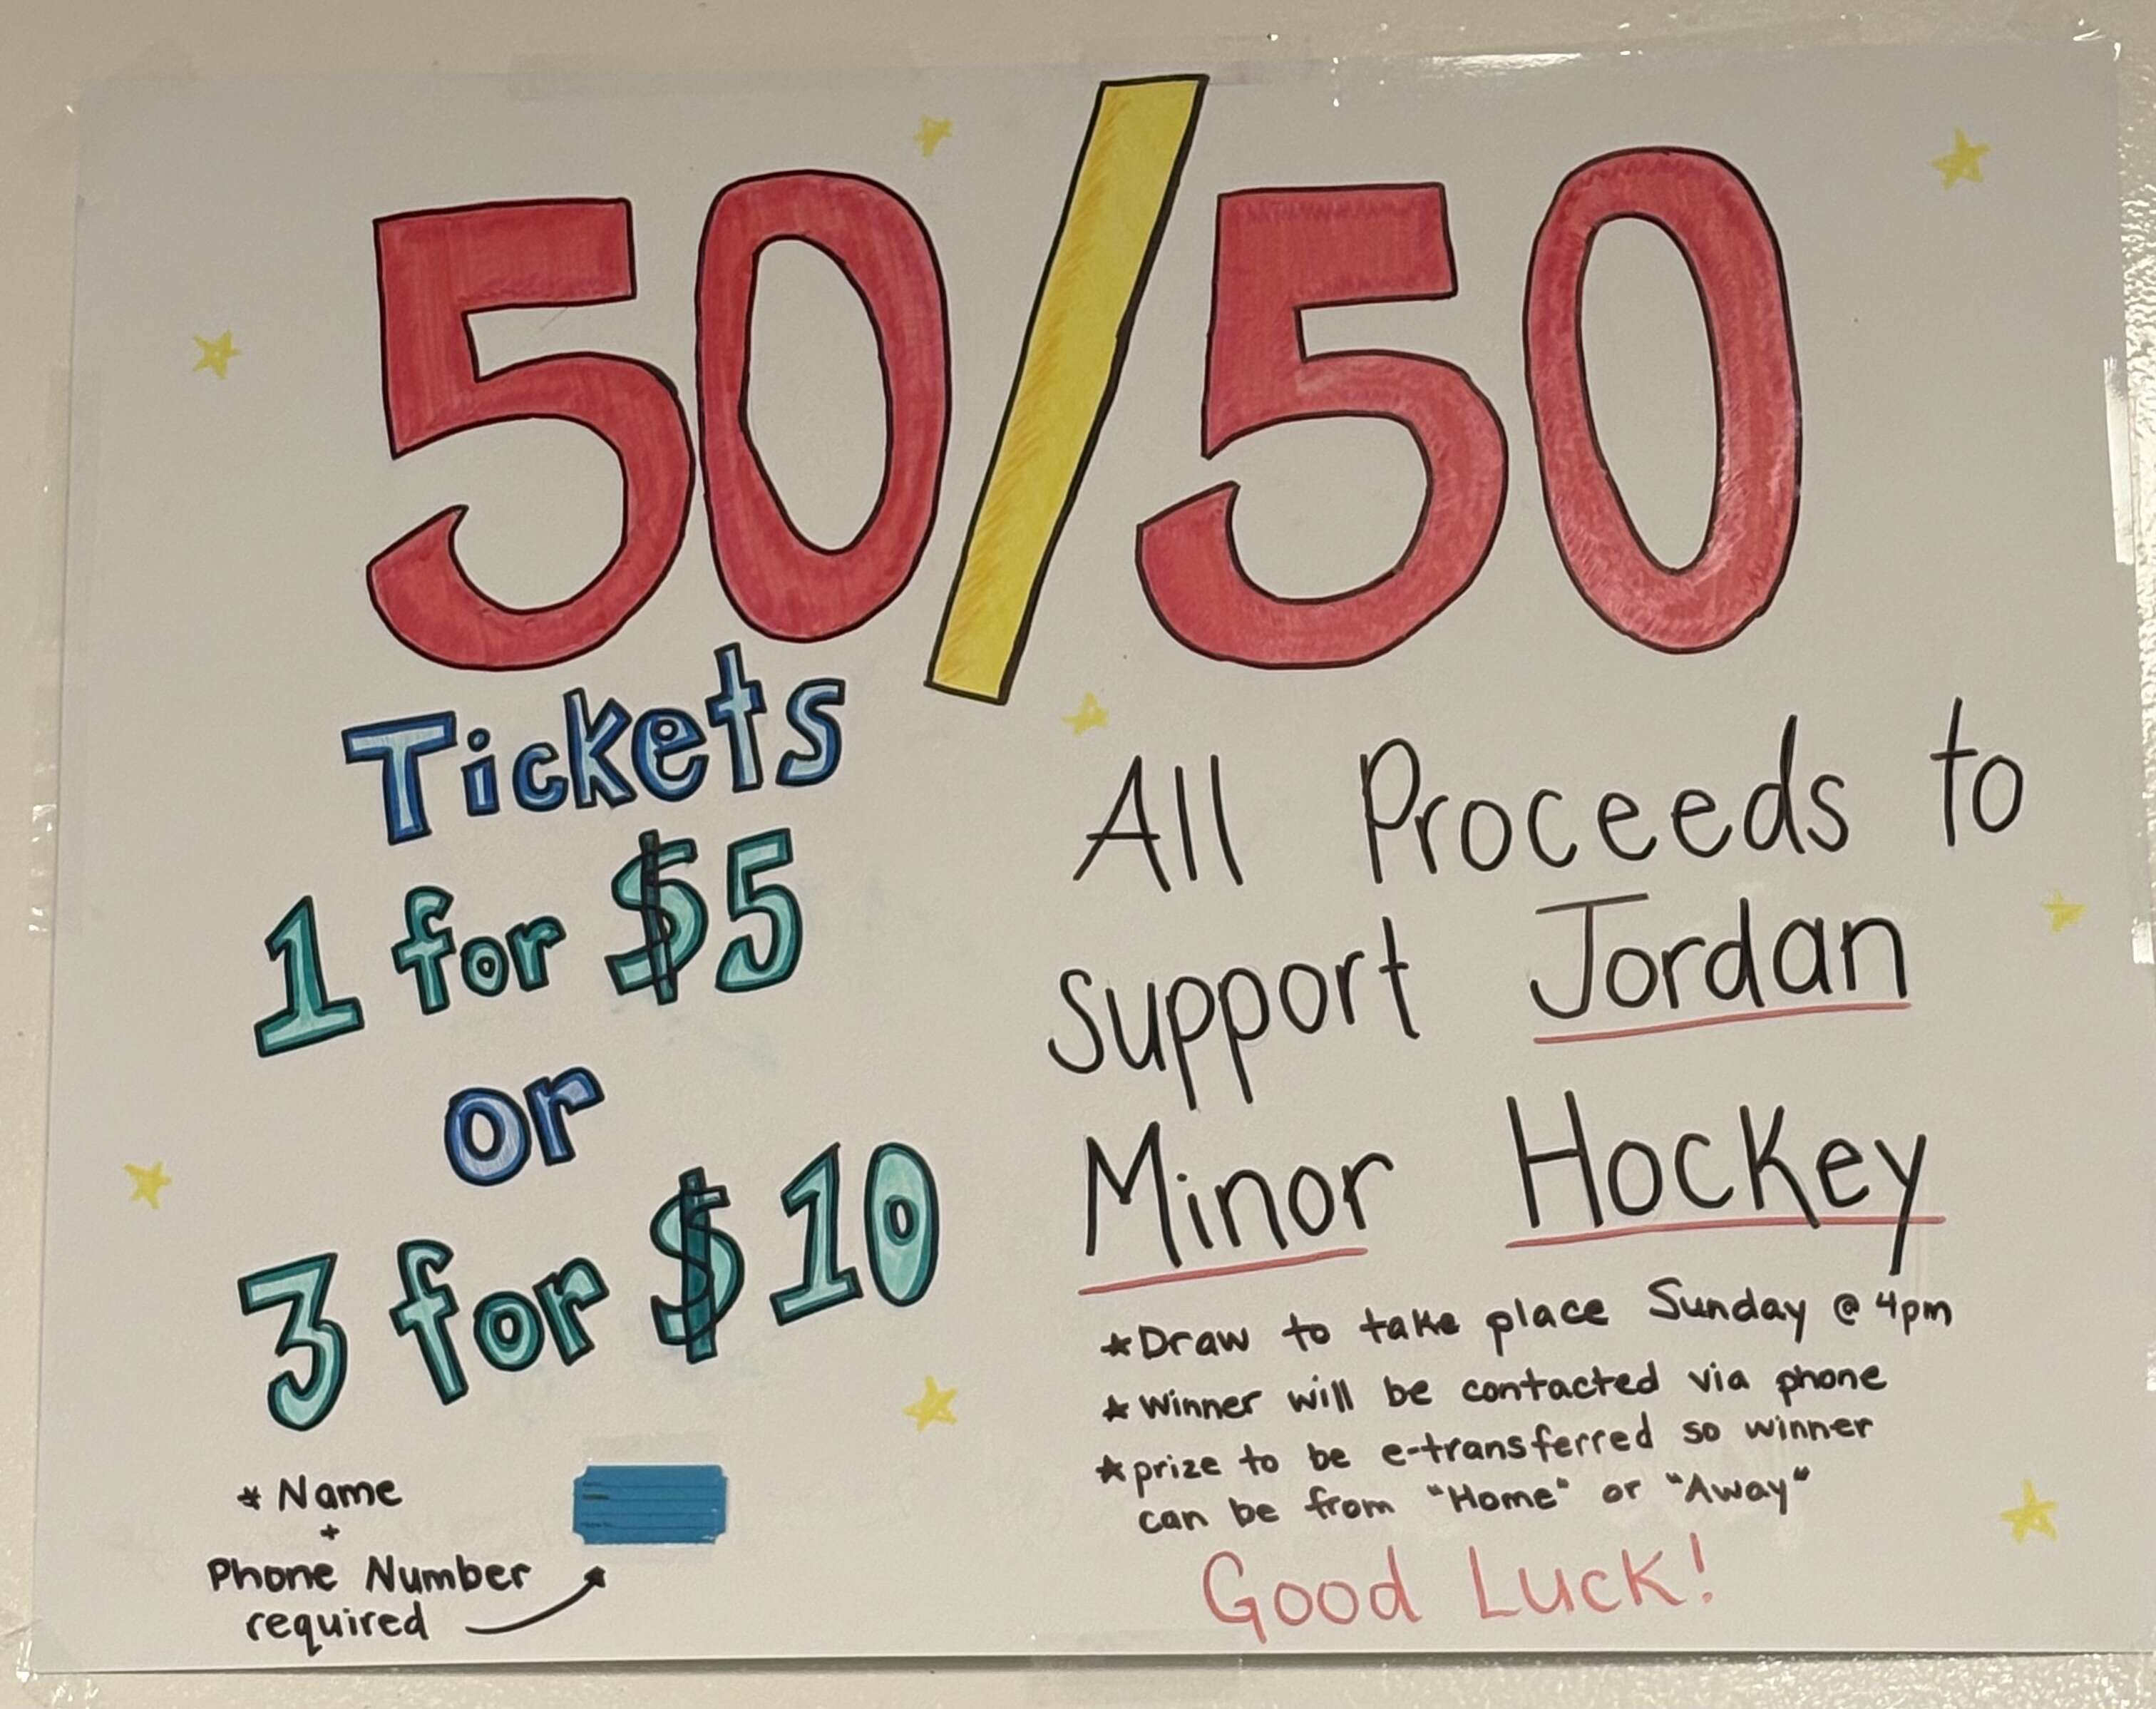 50/50
Tickets
1 for $5
or
3 for $10
* Name
+
Phone Number
required
All Proceeds to
support Jordan
Minor Hockey
*Draw to take place Sunday @ 4pm
*Winner will be contacted via phone
*prize to be e-transferred so winner
can be from "Home" or "Away"
Good Luck!